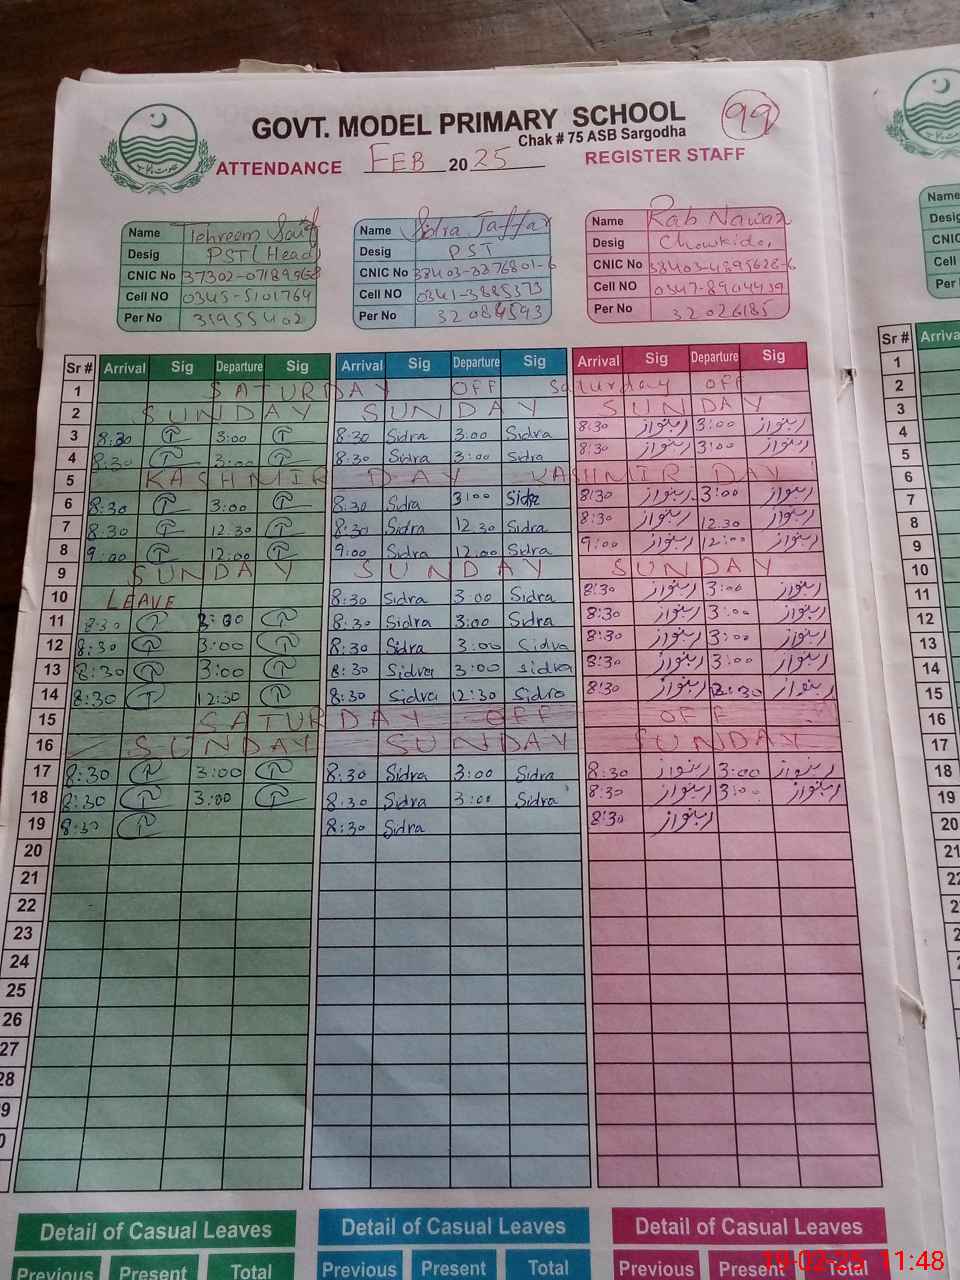 GOVT. MODEL PRIMARY SCHOOL 99
Chak # 75 ASB Sargodha
ATTENDANCE FEB 2025 REGISTER STAFF
Name Tehreem
Desig PST (Head)
CNIC No
Cell NO 0345-5101764
Per No 31955402
Name Sidra Jaffar
Desig PST
CNIC No 38403-3376801-6
Cell NO 0341-3885373
Per No
Name Rab Nawaz
Desig Chowkidar
CNIC No 38403-4895628-6
Cell NO 0347-8904439
Per No 32026185
Sr # Arrival Sig Departure Sig Arrival Sig Departure Sig Arrival Sig Departure Sig
1 SATURDAY OFF Saturday OFF
2 SUNDAY SUNDAY SUNDAY
3 8:30 3:00 8:30 Sidra 3:00 Sidra 8:30 ربنواز 3:00 ربنواز
4 8:30 3:00 8:30 Sidra 3:00 Sidra 8:30 ربنواز 3:00 ربنواز
5 KASHMIR DAY KASHMIR DAY
6 8:30 3:00 8:30 Sidra 3:00 Sidra 8:30 ربنواز 3:00 ربنواز
7 8:30 12:30 8:30 Sidra 12:30 Sidra 8:30 ربنواز 12:30 ربنواز
8 9:00 12:00 9:00 Sidra 12:00 Sidra 9:00 ربنواز 12:00 ربنواز
9 SUNDAY SUNDAY SUNDAY
10 LEAVE 8:30 Sidra 3:00 Sidra 8:30 ربنواز 3:00 ربنواز
11 8:30 3:00 8:30 Sidra 3:00 Sidra 8:30 ربنواز 3:00 ربنواز
12 8:30 3:00 8:30 Sidra 3:00 Sidra 8:30 ربنواز 3:00 ربنواز
13 8:30 3:00 8:30 Sidra 3:00 Sidra 8:30 ربنواز 3:00 ربنواز
14 8:30 12:30 8:30 Sidra 12:30 Sidra 8:30 ربنواز 12:30 ربنواز
15 SATURDAY OFF OFF
16 SUNDAY SUNDAY SUNDAY
17 8:30 3:00 8:30 Sidra 3:00 Sidra 8:30 ربنواز 3:00 ربنواز
18 8:30 3:00 8:30 Sidra 3:00 Sidra 8:30 ربنواز 3:00 ربنواز
19 8:30 8:30 Sidra 8:30 ربنواز
20
21
22
23
24
25
26
27
28
Detail of Casual Leaves Detail of Casual Leaves Detail of Casual Leaves
Previous Present Total Previous Present Total Previous Present Total
19-02-25 11:48